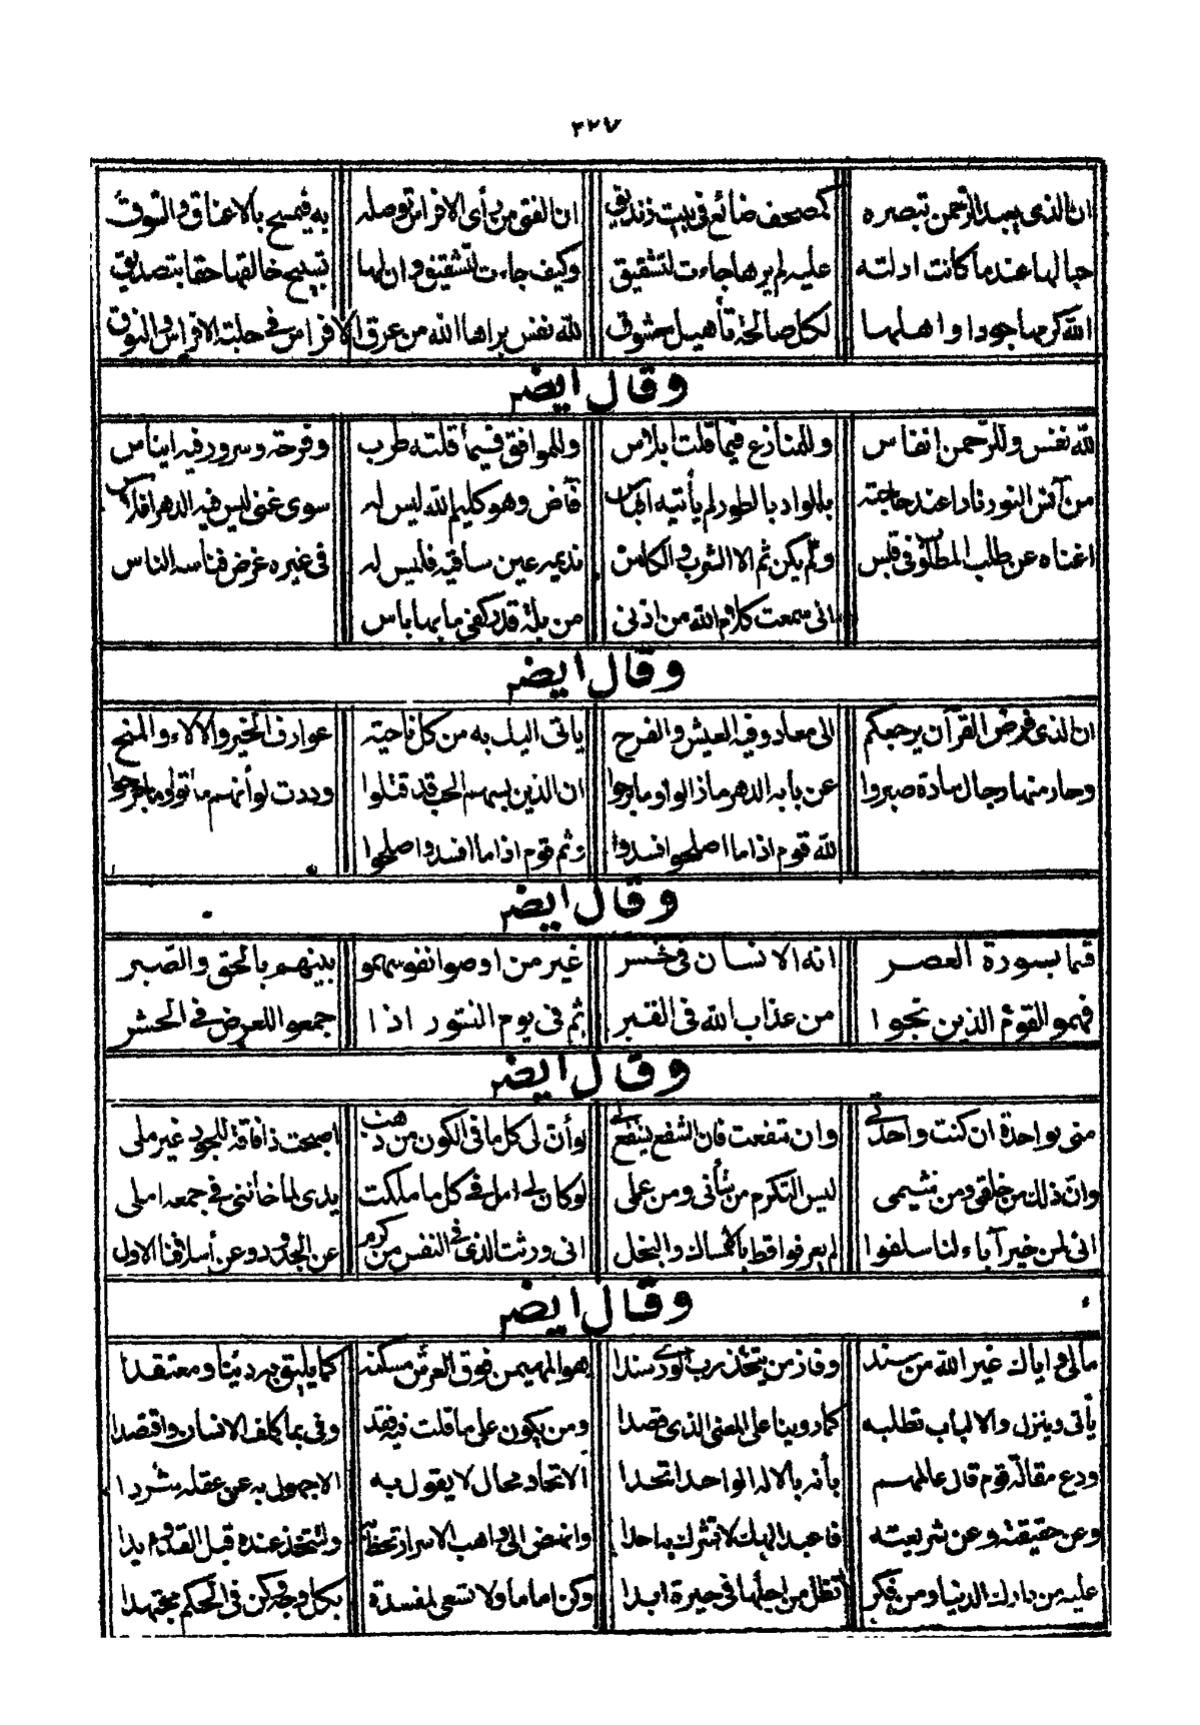 ٢٢٧
ان الذي يعبد الرحمن تبصره كمصحف ضائع في بيت زنديق ان الفتى من رأى الافراس توصله به فيمسح بالاعناق والسوق
حبالها عندما كانت ادلته عليه لم يرها جاءت لتشقيق وكيف جاءت لتشقيق وان لها تسبيح خالقها حقا بتصديق
الله كرمها جودا واهلها لكل صالحة تأهيل معشوق لله نفس براها الله من عرق الافراس في حلبة الافراس والنوق
وقال ايضر
لله نفس وللرحمن انفاس وللمنازع فيما قلت ابلاس وللموافق فيما قلته طرب وفرحة وسرور فيه ايناس
من آنس النور نارا عند حاجته بالواد بالطور لم يأتيه وهو كليم الله ليس له سوى غنى ليس فيه الدهر افلاس
اغناه عن طلب المطلوب في قبس ولم يكن ثم الا الشرب والكاس نديمه عين ساقيه فليس له في غيره غرض فناسه الناس
اني سمعت كلام الله من اذني من بلة قد كفي ما بها باس
وقال ايضر
ان الذي فرض القرآن يرجعكم الى معاد وفيه العيش والفرح ياتي اليك به من كل ناحية عوارف الخير والآلاء والمنح
وحاد منها رجال سادة صبروا عن بابه الدهر ما زالوا وما برحوا ان الذين بسهم الحب قد قتلوا وددت لو أنهم ماتوا وما جرحوا
لله قوم اذا ما اصلحوا افسدوا وثم قوم اذا ما افسدوا اصلحوا
وقال ايضر
قسما بسورة العصر انه الانسان في خسر غير من اوصوا نفوسهمو بينهم بالحق والصبر
فهمو القوم الذين نجوا من عذاب الله في القبر ثم في يوم النشور اذا جمعوا للعرض في الحشر
وقال ايضر
مني بواحدة ان كنت واحدتي وان شفعت فان الشفع ينفع لي لو أن لي كل ما في الكون من ذهب اصبحت ذا فاقة للجود غير ملي
وان ذلك من خلقي ومن شيمي ليس التكرم من شأني ومن عملي لو كان لي امل في كل ما ملكت يدي لما خانني في جمعه املي
اني لمن خير آباء لنا سلفوا لم يعرفوا قط بالامساك والبخل اني ورثت الذي في النفس من كرم عن الجدود وعن أسلافنا الاول
وقال ايضر
مالي واياك غير الله من سند وفاز من يتخذ رب الورى سندا هو المهيمن فوق العرش مسكنه كما يليق به دينا ومعتقدا
يأتي وينزل والالباب تطلبه كما روينا على المعنى الذي قصدا ومن يكون على ما قلت فيه فقد وفى بما كلف الانسان واقتصدا
ودع مقالة قوم قال عالمهم بأنه بالاله الواحد اتحدا الاتحاد محال لا يقول به الا جهول به عن عقله شردا
وعن حقيقته وعن شريعته فاعبد الهك لا تشرك به احدا وانهض الى واهب الاسرار ولتتخذ عنده قبل القدوم يدا
عليه من دارك الدنيا ومن فكر تظل من اجلها في حيرة ابدا وكن اماما ولا تسعى لمفسدة بكل وجه وكن في الحكم مجتهدا